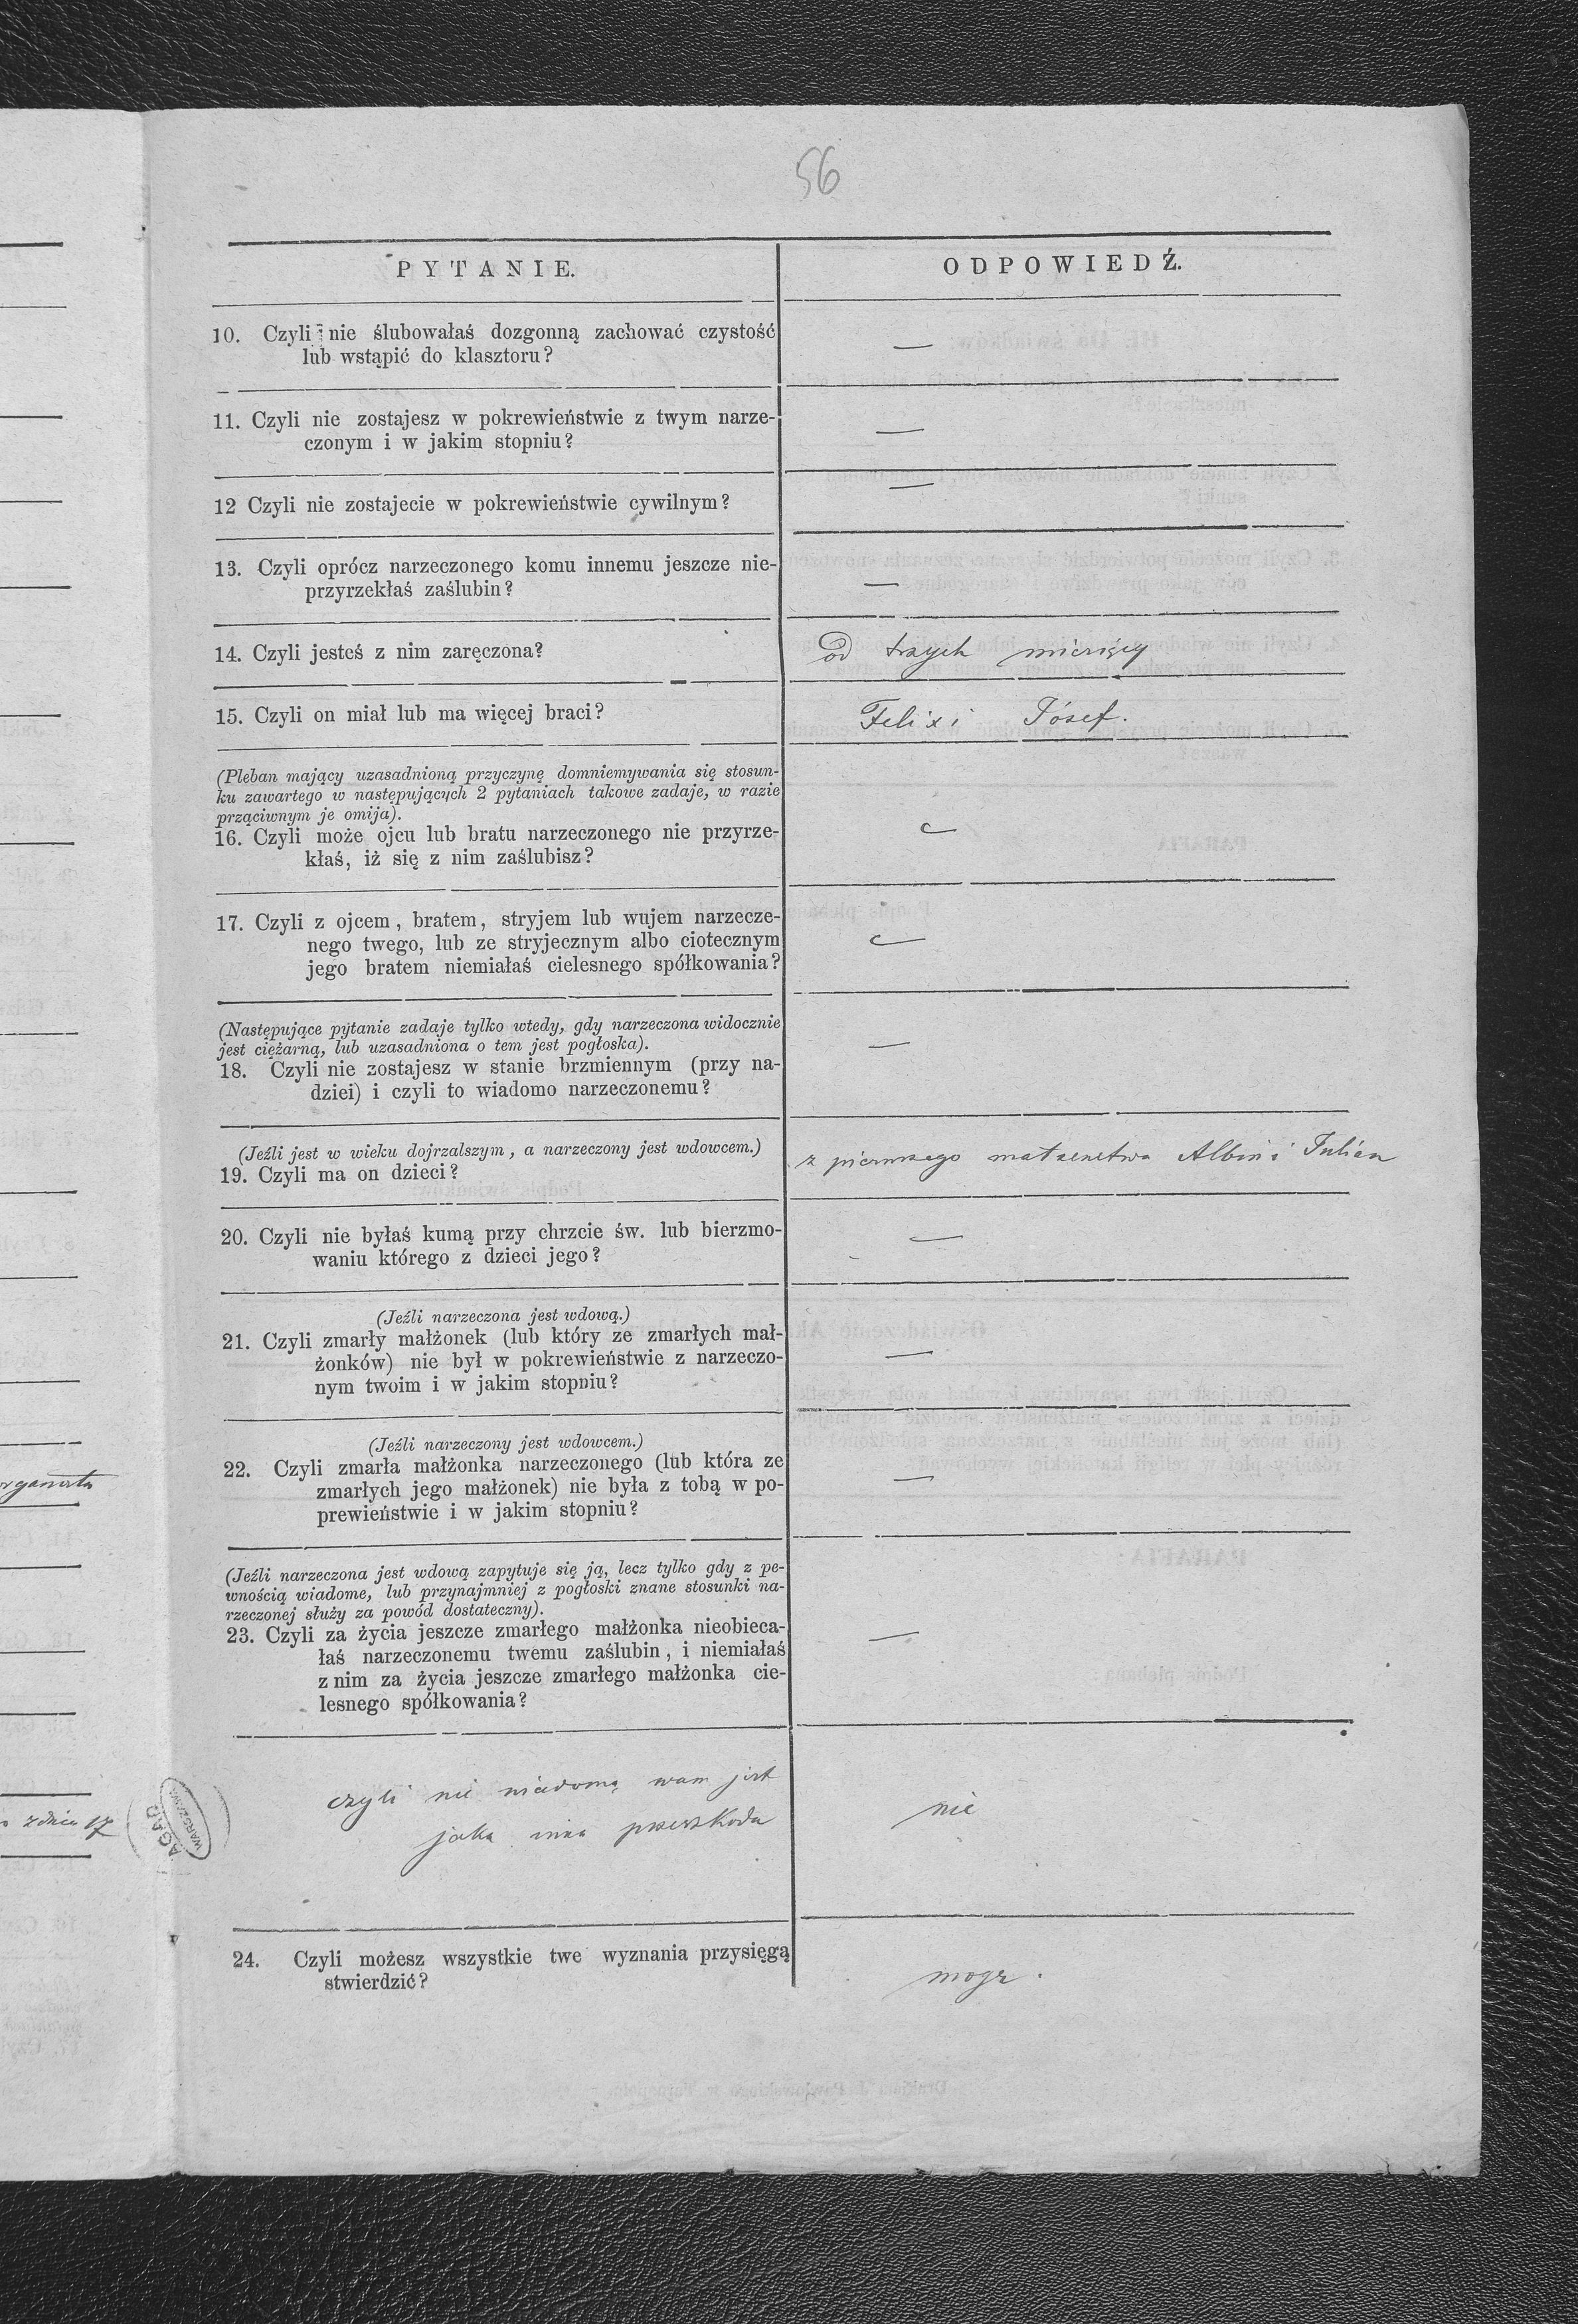 56
PYTANIE.
ODPOWIEDŹ.
10. Czyli nie ślubowałaś dozgonną zachować czystość
lub wstąpić do klasztoru?
—
11. Czyli nie zostajesz w pokrewieństwie z twym narze-
czonym i w jakim stopniu?
—
12 Czyli nie zostajecie w pokrewieństwie cywilnym?
—
13. Czyli oprócz narzeczonego komu innemu jeszcze nie-
przyrzekłaś zaślubin?
—
14. Czyli jesteś z nim zaręczona?
od trzech miesięcy
15. Czyli on miał lub ma więcej braci?
Felix i Józef.
(Pleban mający uzasadnioną przyczynę domniemywania się stosun-
ku zawartego w następujących 2 pytaniach takowe zadaje, w razie
prząciwnym je omija).
16. Czyli może ojcu lub bratu narzeczonego nie przyrze-
kłaś, iż się z nim zaślubisz?
—
17. Czyli z ojcem, bratem, stryjem lub wujem narzecze-
nego twego, lub ze stryjecznym albo ciotecznym
jego bratem niemiałaś cielesnego spółkowania?
—
(Następujące pytanie zadaje tylko wtedy, gdy narzeczona widocznie
jest ciężarną, lub uzasadniona o tem jest pogłoska).
18. Czyli nie zostajesz w stanie brzmiennym (przy na-
dziei) i czyli to wiadomo narzeczonemu?
—
(Jeźli jest w wieku dojrzalszym, a narzeczony jest wdowcem.)
19. Czyli ma on dzieci?
z pierwszego małżenstwa Albin i Julian
20. Czyli nie byłaś kumą przy chrzcie św. lub bierzmo-
waniu którego z dzieci jego?
—
(Jeźli narzeczona jest wdową.)
21. Czyli zmarły małżonek (lub który ze zmarłych mał-
żonków) nie był w pokrewieństwie z narzeczo-
nym twoim i w jakim stopniu?
—
(Jeźli narzeczony jest wdowcem.)
22. Czyli zmarła małżonka narzeczonego (lub która ze
zmarłych jego małżonek) nie była z tobą w po-
prewieństwie i w jakim stopniu?
—
(Jeźli narzeczona jest wdową zapytuje się ją, lecz tylko gdy z pe-
wnością wiadome, lub przynajmniej z pogłoski znane stosunki na-
rzeczonej służy za powód dostateczny).
23. Czyli za życia jeszcze zmarłego małżonka nieobieca-
łaś narzeczonemu twemu zaślubin, i niemiałaś
z nim za życia jeszcze zmarłego małżonka cie-
lesnego spółkowania?
—
czyli nie wiadomą wam jest
jaka inna przeszkoda
nie
24. Czyli możesz wszystkie twe wyznania przysięgą
stwierdzić?
mogę.
organista
z dnia 17
AGAD
WARSZAWA